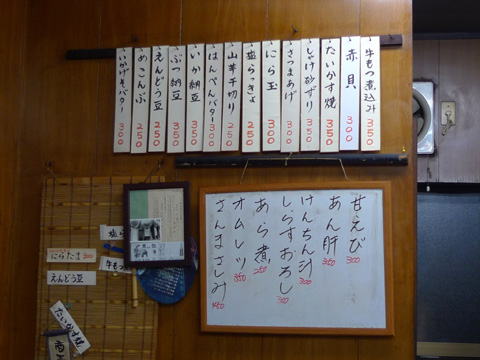 牛もつ煮込み 350
赤貝 300
たいかす焼 350
しゃけ砂ずり 350
さつまあげ 300
にら玉 300
塩らっきょ 250
山芋千切り 250
はんぺんバター 300
いか納豆 350
ぶつ納豆 350
えんどう豆 250
めこんぶ 250
いかげそバター 300
甘えび 300
あん肝 350
けんちん汁 300
しらすおろし 300
あら煮 250
オムレツ 350
さんまさしみ 450
にらたま 300
えんどう豆
牛もつ
たいかす焼